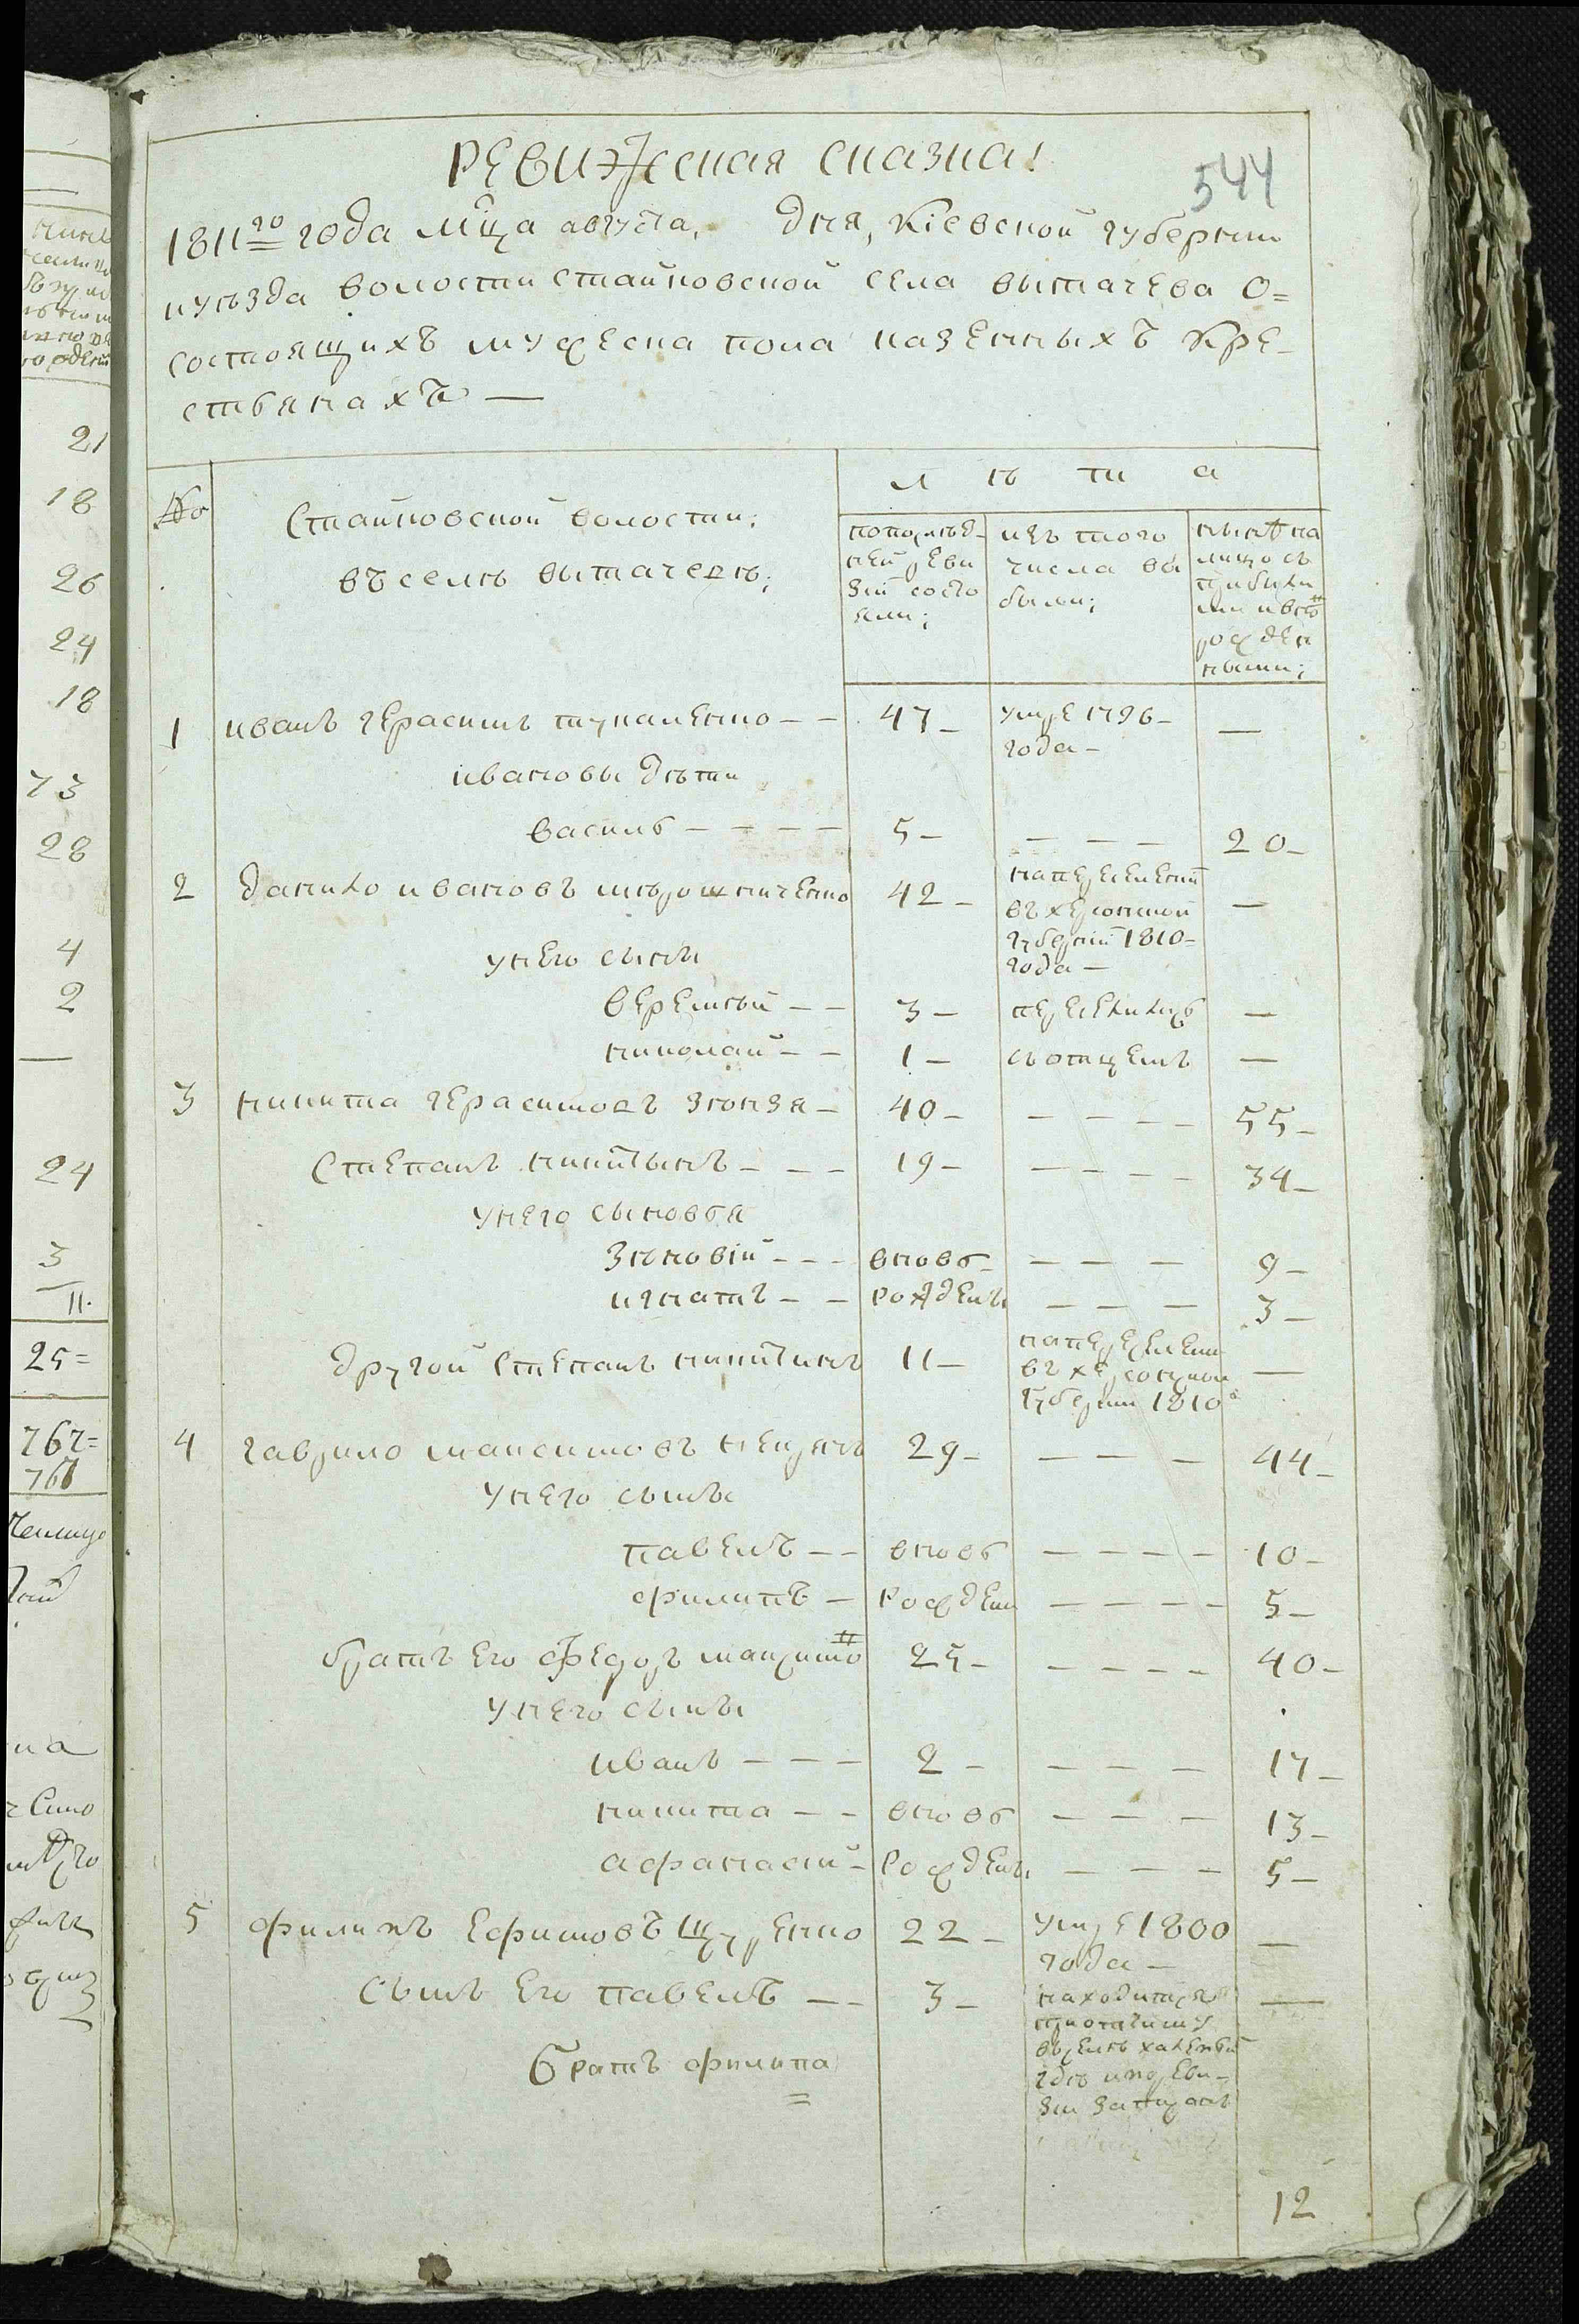 21
18
26
24
18
73
28
4
2
24
3
11.
25=
767=
767
РЕВИЖеская сказка!
544
1811го года мца августа, дня, Кіевской губерніи
и уѣзда волости Стайковской села вытачева О=
состоящихъ мужеска пола казенныхъ Кре-
стьянахъ —
№
Стайковской волости;
въ селѣ вытачевѣ;
л ѣ т а
по послѣд-
ней реви
зіи состо
яли;
изъ того
числа вы
были;
нынѣ на
лицо съ
прибыли
ми и вно
рожден
ными;
1 иванъ герасимъ тукаленко — — 47 — умре 1796 —
года —
—
ивановы дѣти
василь — — — — 5 — — — — 20 —
2 данило ивановъ мѣрошниченко 42 — на переселеніи
въ херсонской
губерніи 1810 =
года —
—
у него сыны
веремѣй — — 3 — переселились —
николай — — 1 — съ отцемъ —
3 никита герасимовъ зюнзя — 40 — — — — — 55 —
Степанъ никитынъ — — — 19 — — — — — 34 —
у него сыновья
зѣновій — — — вновь — — — — 9 —
игнатъ — — рожденъ — — — 3 —
другой степанъ никитинъ 11 — на переселеніи
въ херсонской
губерніи 1810
—
4 гаврило максимовъ 29 — — — — 44 —
у него сыны
павелъ — — вновь — — — — 10 —
филипъ — рожден — — — — 5 —
братъ его федоръ максимо 25 — — — — — 40 —
у него сыны
иванъ — — — 2 — — — — 17 —
никита — — вновь — — — 13 —
афанасій — рожденъ — — — 5 —
5 филипъ ефимовъ щуренко 22 — умре 1800
года —
—
сынъ его павелъ — — 3 — находится
при отчиму
въ селѣ халепьи
гдѣ и по реви-
зіи записанъ
—
братъ филипа
=
12